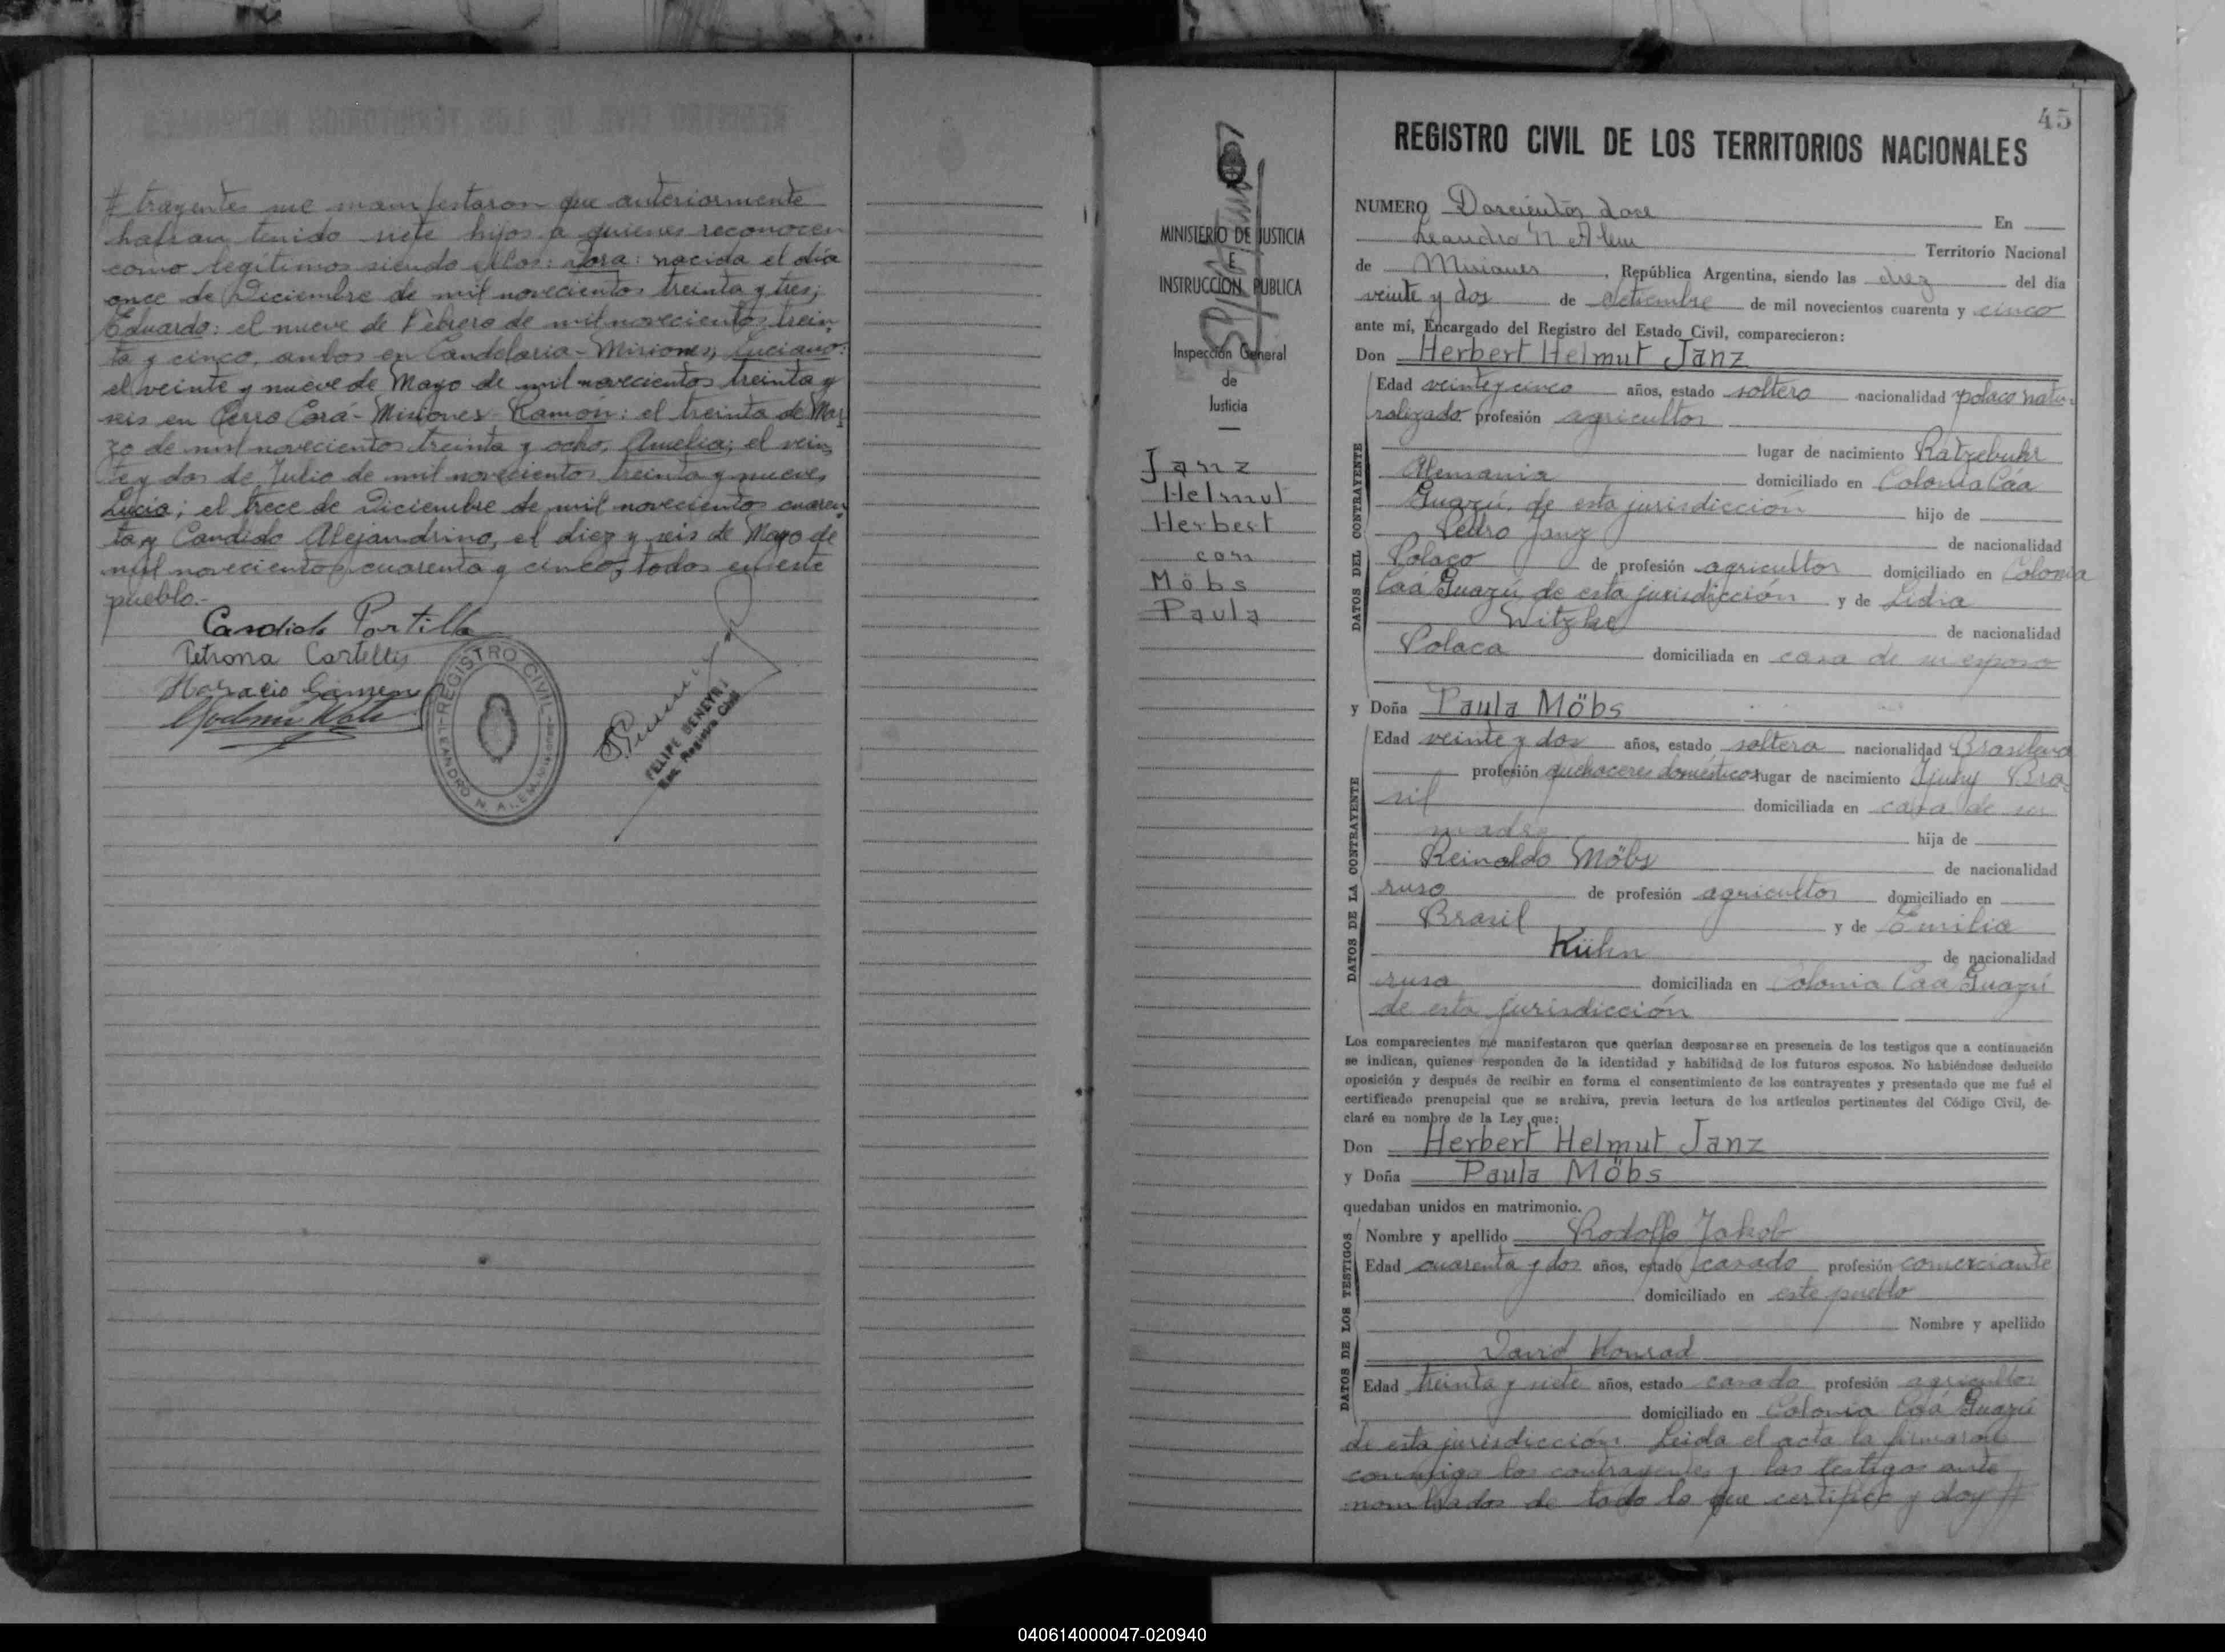 # trayentes me manifestaron que anteriormente
habian tenido siete hijos a quienes reconocen
como legítimos siendo ellos: Dora: nacida el día
once de Diciembre de mil novecientos treinta y tres;
Eduardo: el nueve de Febrero de mil novecientos trein
ta y cinco, ambos en Candelaria-Misiones; Luciano:
el veinte y nueve de Mayo de mil novecientos treinta y
seis en Cerro Corá-Misiones; Ramón: el treinta de Mar
zo de mil novecientos treinta y ocho; Amelia; el vein
te y dos de Julio de mil novecientos treinta y nueve,
Lucia; el trece de Diciembre de mil novecientos cuaren
ta, y Candido Alejandrino, el diez y seis de Mayo de
mil novecientos cuarenta y cinco, todos en este
pueblo.-
Candido Portillo
Petrona
Horacio
REGISTRO CIVIL
LEANDRO N. ALEM
FELIPE BENEYRI
Enc. Registro Civil
MINISTERIO DE JUSTICIA
E
INSTRUCCION PUBLICA
Inspección General
de
Justicia
Janz
Helmut
Herbert
con
Möbs
Paula
45
REGISTRO CIVIL DE LOS TERRITORIOS NACIONALES
NUMERO Doscientos doce En
Leandro N Alem Territorio Nacional
de Misiones, República Argentina, siendo las diez del día
veinte y dos de Setiembre de mil novecientos cuarenta y cinco
ante mí, Encargado del Registro del Estado Civil, comparecieron:
Don Herbert Helmut Janz
DATOS DEL CONTRAYENTE
Edad veinte y cinco años, estado soltero nacionalidad polaco natu-
ralizado profesión agricultor
lugar de nacimiento Ratzebuhr
Alemania domiciliado en Colonia Cáa
Guazú, de esta jurisdicción hijo de
Pedro Janz de nacionalidad
Polaco de profesión agricultor domiciliado en Colonia
Cáa Guazú de esta jurisdicción y de Lidia
Witzke de nacionalidad
Polaca domiciliada en casa de su esposo
y Doña Paula Möbs
DATOS DE LA CONTRAYENTE
Edad veinte y dos años, estado soltera nacionalidad Brasilera
profesión quehaceres domésticos lugar de nacimiento Ijuhy Bra-
sil domiciliada en casa de su
madre hija de
Reinaldo Möbs de nacionalidad
ruso de profesión agricultor domiciliado en
Brasil y de Emilia
Kühn de nacionalidad
rusa domiciliada en Colonia Cáa Guazú
de esta jurisdicción
Los comparecientes me manifestaron que querían desposarse en presencia de los testigos que a continuación
se indican, quienes responden de la identidad y habilidad de los futuros esposos. No habiéndose deducido
oposición y después de recibir en forma el consentimiento de los contrayentes y presentado que me fué el
certificado prenupcial que se archiva, previa lectura de los artículos pertinentes del Código Civil, de-
claré en nombre de la Ley que:
Don Herbert Helmut Janz
y Doña Paula Möbs
quedaban unidos en matrimonio.
DATOS DE LOS TESTIGOS
Nombre y apellido Rodolfo Jakob
Edad cuarenta y dos años, estado casado profesión comerciante
domiciliado en este pueblo
Nombre y apellido
David Konrad
Edad treinta y siete años, estado casado profesión agricultor
domiciliado en Colonia Cáa Guazú
de esta jurisdicción. Leida el acta la firmaron
conmigo los contrayentes y los testigos ante
nombrados de todo lo que certifico y doy #
040614000047-020940